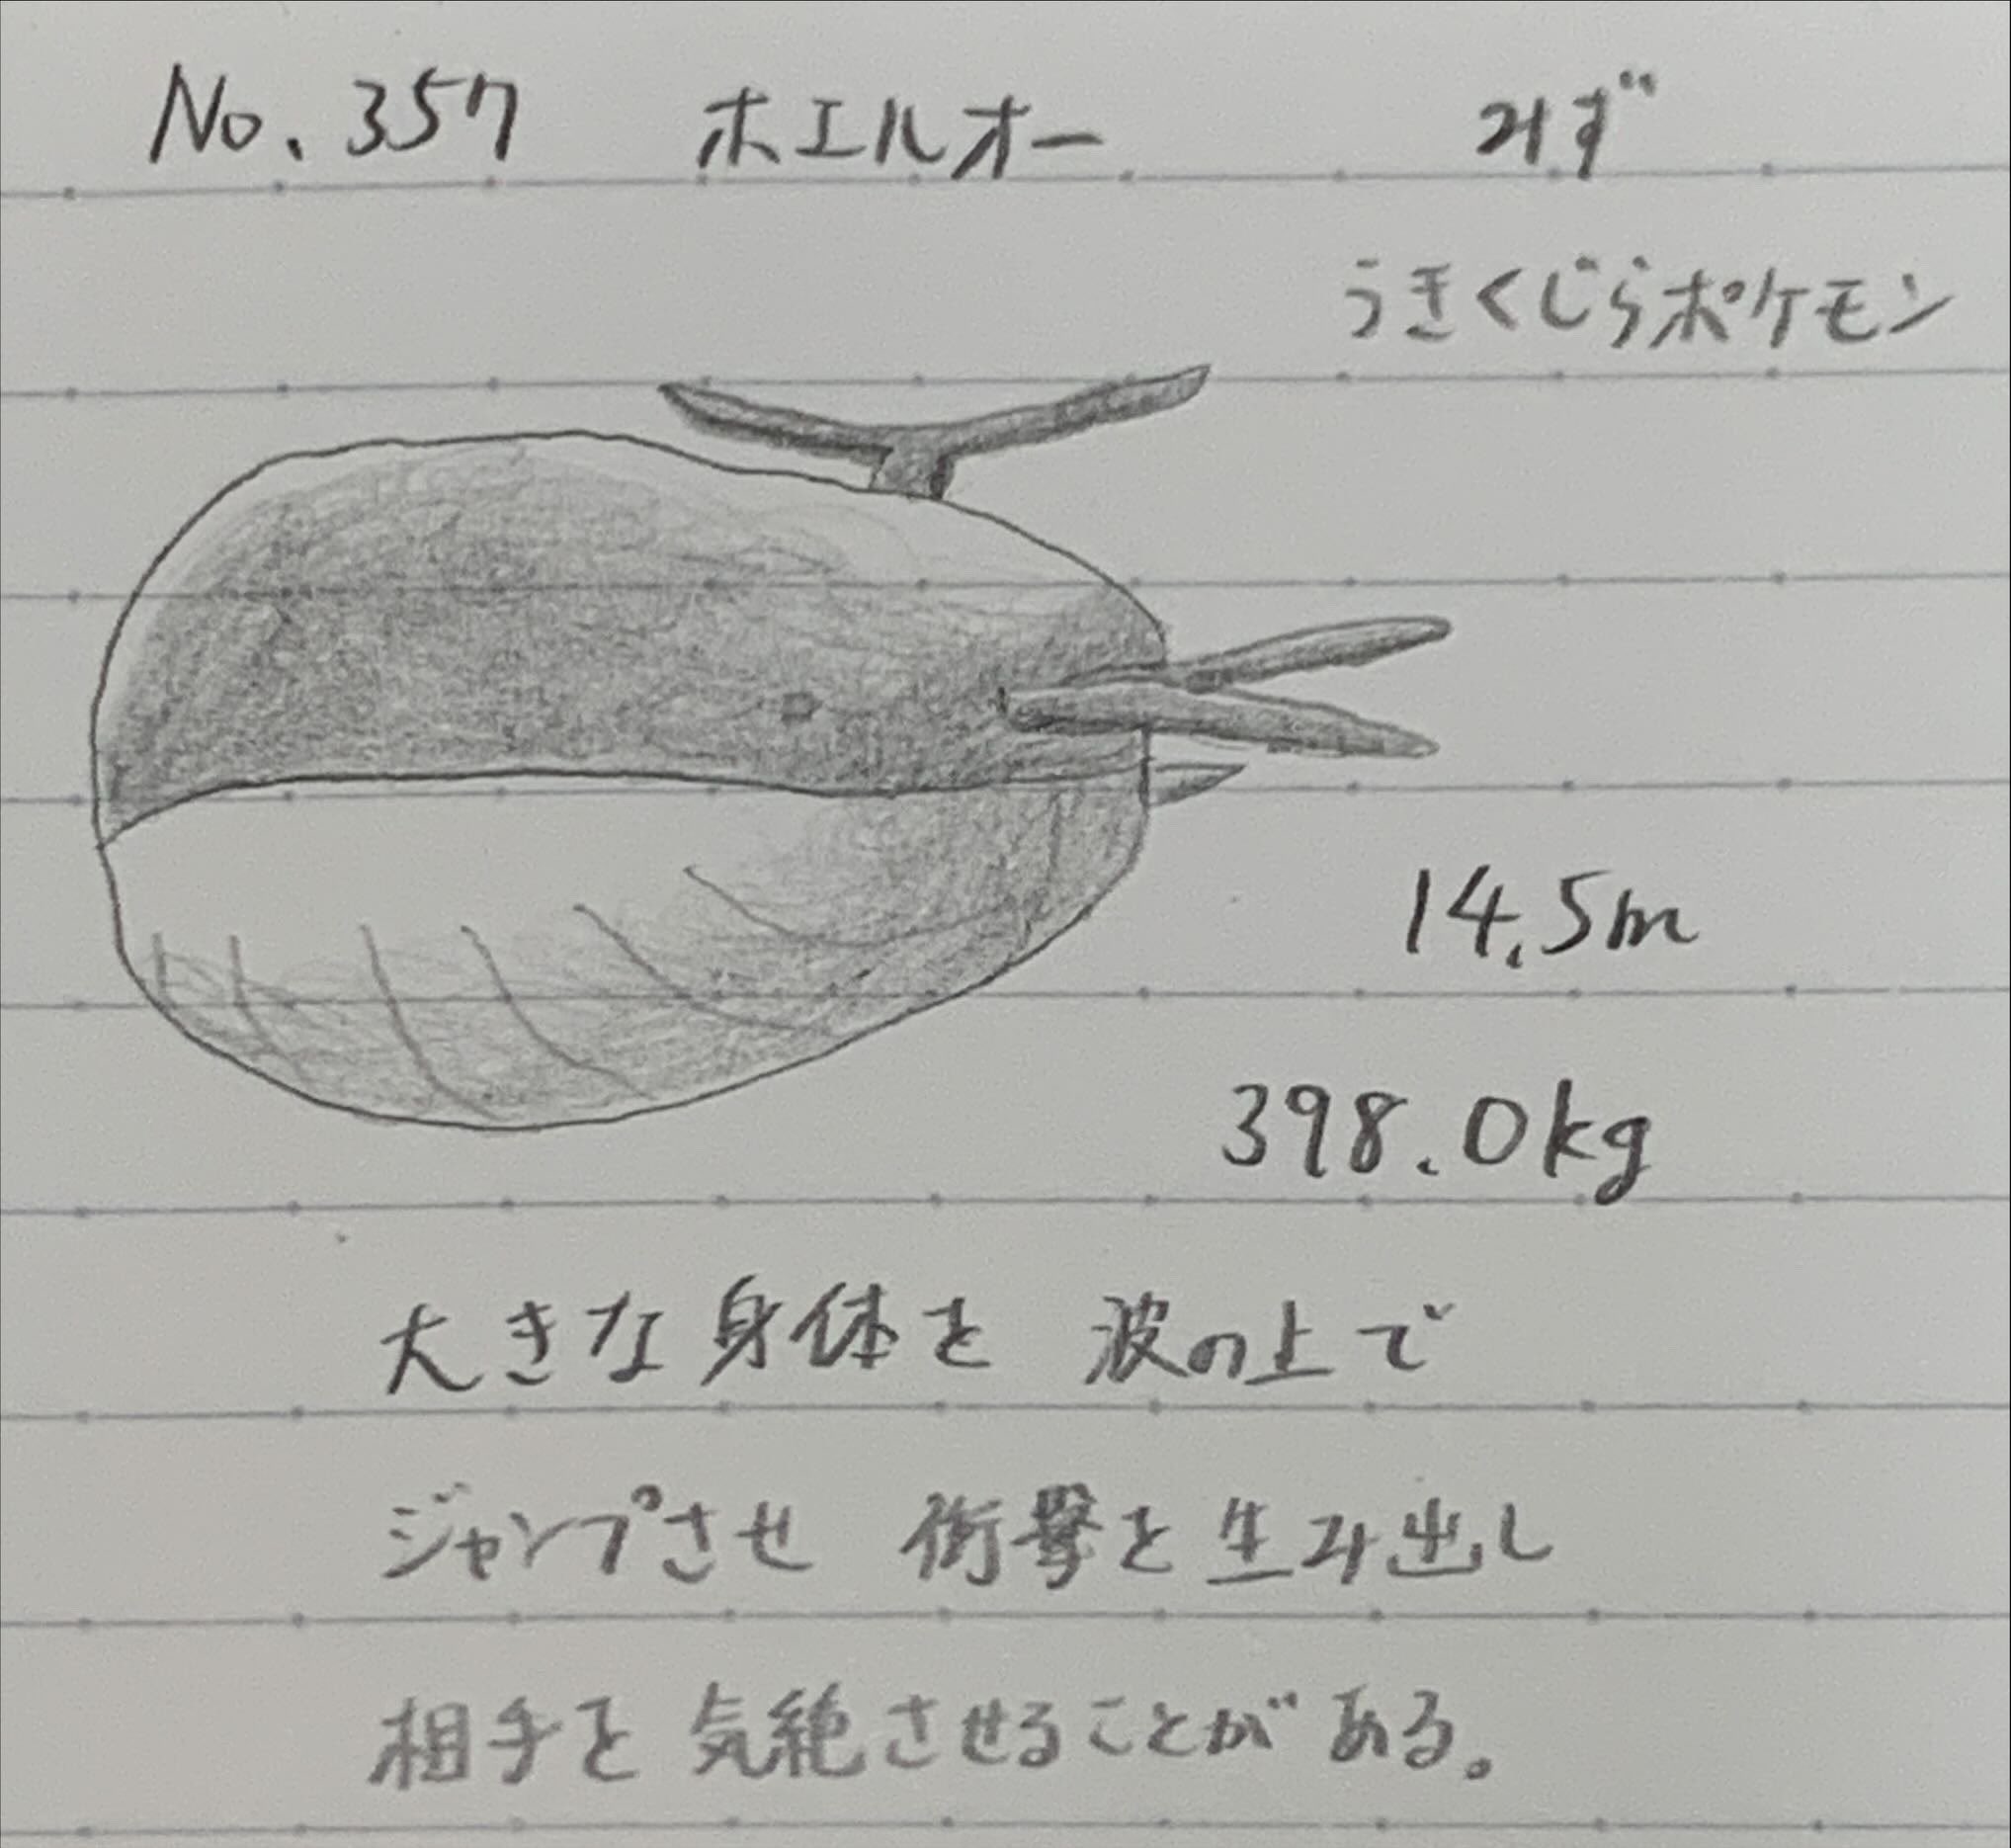 No.357 ホエルオー みず
うきくじらポケモン
14.5m
398.0kg
大きな身体を 波の上で
ジャンプさせ 衝撃を生み出し
相手を 気絶させることが ある。